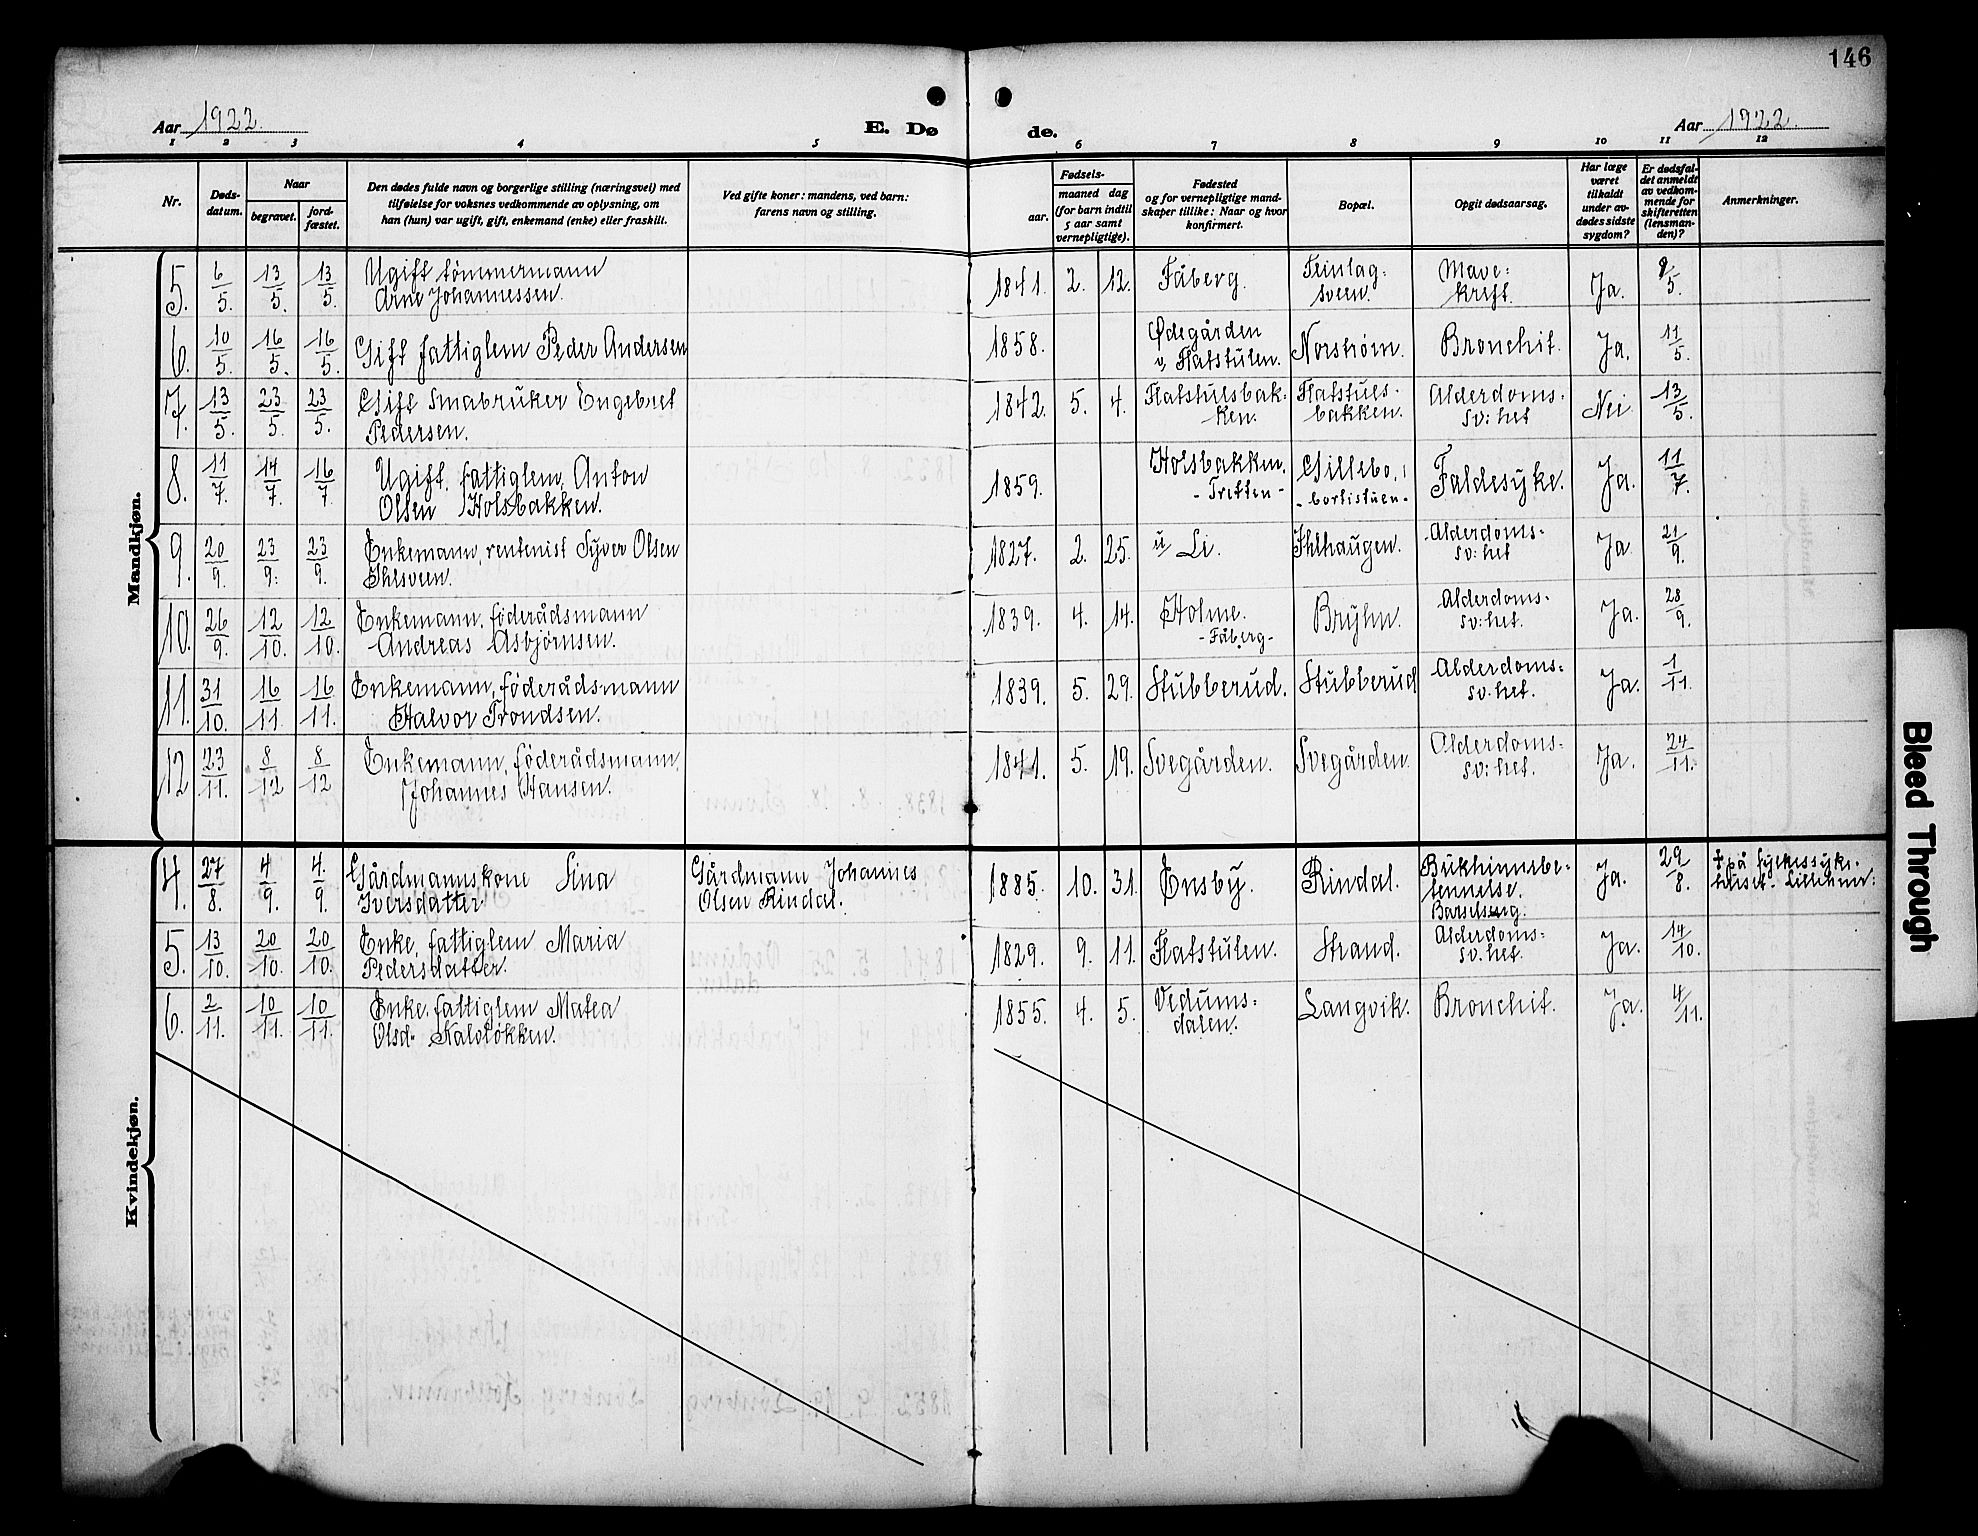 146
Aar 1922.
E. Dø
de.
Aar 1922.
1 2 3 4 5 6 7 8 9 10 11 12
Nr.
Døds-
datum.
Naar
begravet.
jord-
fæstet.
Den dødes fulde navn og borgerlige stilling (næringsvei) med
tilføielse for voksnes vedkommende av oplysning, om
han (hun) var ugift, gift, enkemand (enke) eller fraskilt.
Ved gifte koner: mandens, ved barn:
farens navn og stilling.
Fødsels-
aar.
maaned dag
(for barn indtil
5 aar samt
vernepligtige).
Fødested
og for vernepligtige mand-
skaper tillike: Naar og hvor
konfirmert.
Bopæl.
Opgit dødsaarsag.
Har læge
været
tilkaldt
under av-
dødes sidste
sygdom?
Er dødsfal-
det anmeldt
av vedkom-
mende for
skifteretten
(lensman-
den)?
Anmerkninger.
Mandkjøn.
5. 6/5. 13/5. 13/5. Ugift tömmermann
Arne Johannessen.
1841. 2. 12. Fåberg. Teinlag-
sveen. Mave-
kreft. Ja. 9/5.
6. 10/5. 16/5. 16/5. Gift fattiglem Peder Andersen
1858. Ødegården
u/ Flatstulen. Norstrøm. Bronchit. Ja. 11/5.
7. 13/5. 23/5. 23/5. Gift Småbruker Engebret
Pedersen.
1842. 5. 4. Flatstulsbak-
ken. Flatstuls-
bakken. Alderdoms-
sv:het Nei 13/5.
8. 11/7. 14/7. 16/7. Ugift, fattiglem, Anton
Olsen Holsbakken.
1859. Holsbakken.
- Tretten - Gillebo,
- bortistuen - Faldesyke. Ja. 11/7.
9. 20/9. 23/9. 23/9. Enkemann, rentenist Syver Olsen
Ihlsveen.
1827. 2. 25. u/ Li. Ihlhaugen. Alderdoms-
sv:het Ja 21/9.
10. 26/9. 12/10. 12/10. Enkemann, föderådsmann
Andreas Asbjørnsen.
1839. 4. 14. Holme.
- Fåberg - Bryhn. Alderdoms-
sv:het. Ja. 28/9.
11. 31/10. 16/11. 16/11. Enkemann, föderådsmann
Halvor Trondsen.
1839. 5. 29. Stubberud. Stubberud Alderdoms-
sv:het. Ja. 1/11.
12 23/11. 8/12 8/12 Enkemann, föderådsmann,
Johannes Hansen.
1841. 5. 19. Svegården. Svegården. Alderdoms-
sv:het. Ja. 24/11.
Kvindekjøn.
4. 27/8. 4/9. 4/9. Gårdmannskone Lina
Iversdatter
Gårdmann Johannes
Olsen Rindal.
1885. 10. 31. Ensby. Rindal. Bukhinnebe-
tennelse.
Barselseng. Ja. 29/8. + på fylkessyke-
huset. Lillehmr:
5. 13/10. 20/10. 20/10. Enke, fattiglem Maria
Pedersdatter.
1829. 9. 11. Flatstulen. Strand. Alderdoms-
sv:het. Ja. 14/10.
6. 2/11. 10/11. 10/11. Enke, fattiglem Matea
Olsd. Kalvløkken.
1855. 4. 5. Vedums-
dalen. Langvik. Bronchit. Ja. 4/11.
Bleed Through